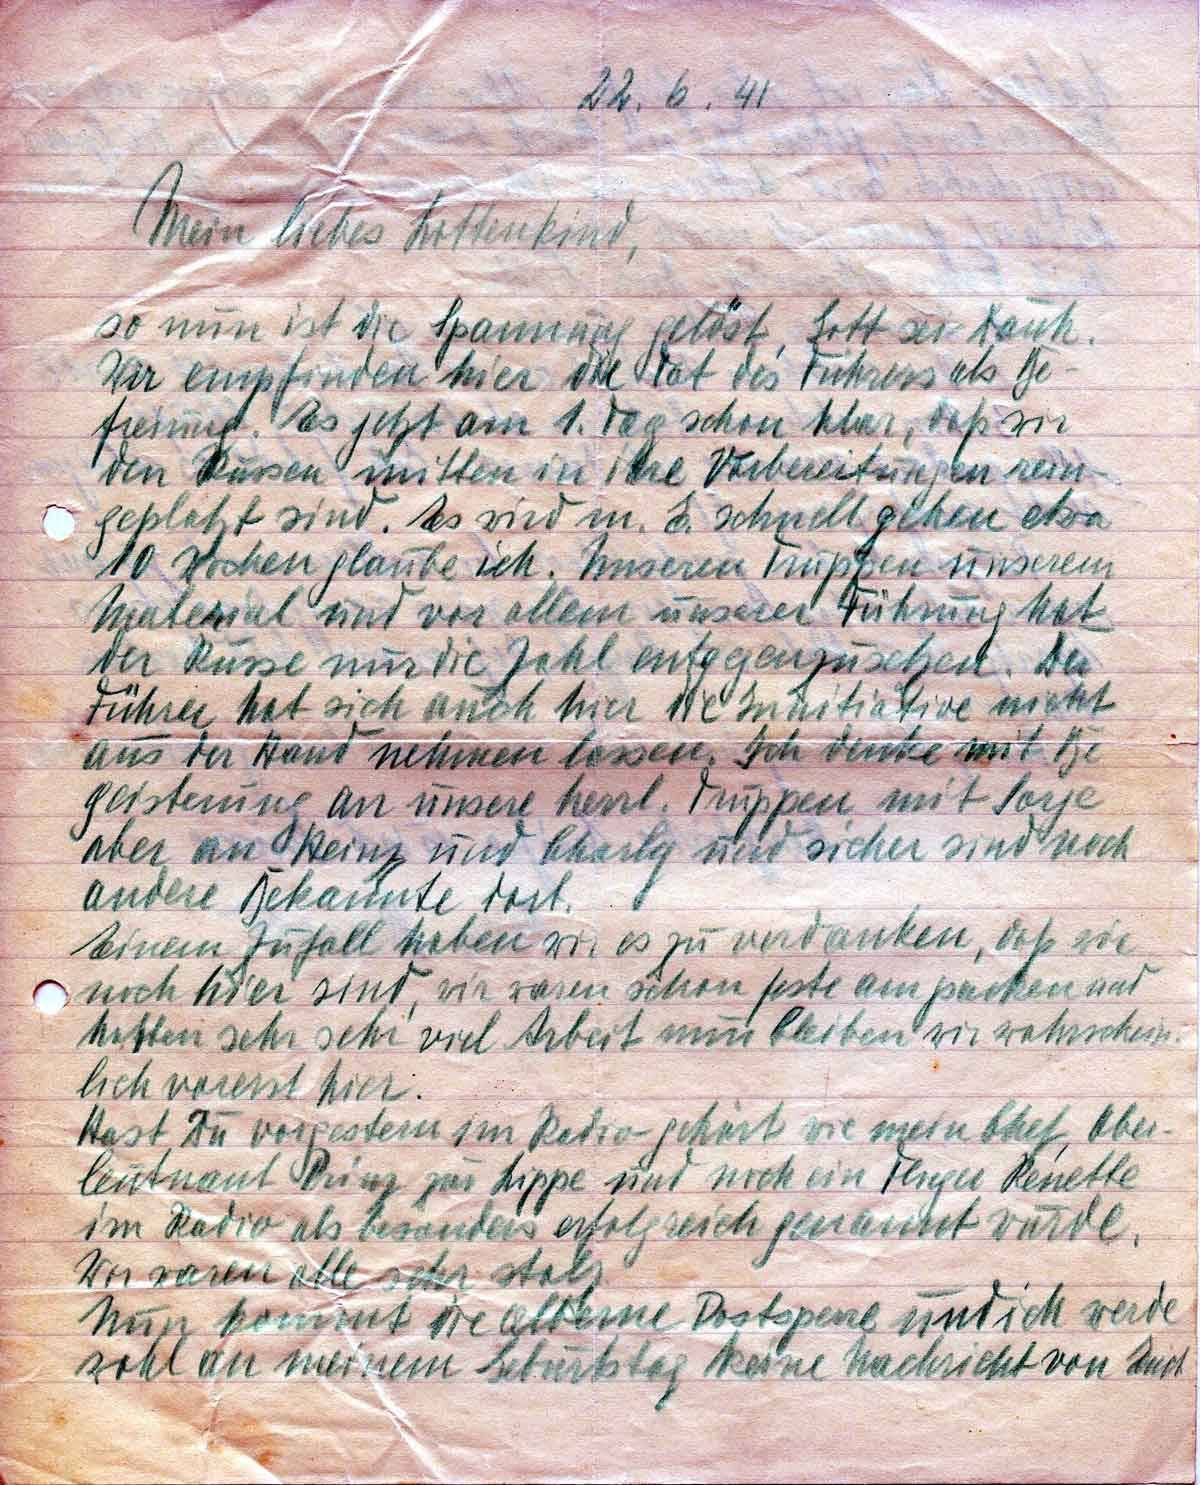 22. 6. 41
Mein liebes Lottenkind,
so nun ist die Spannung gelöst, Gott sei Dank.
Wir empfinden hier die Tat des Führers als Be-
freiung. Es jetzt am 1. Tag schon klar, daß wir
den Russen mitten in ihre Vorbereitungen rein-
geplatzt sind. Es wird m. E. schnell gehen etwa
10 Wochen glaube ich. Unseren Truppen unserem
Material und vor allem unserer Führung hat
der Russe nur die Zahl entgegenzusetzen. Der
Führer hat sich auch hier die Inititiative nicht
aus der Hand nehmen lassen. Ich denke mit Be
geisterung an unsere herrl. Truppen mit Sorge
aber an Heinz und Charly und sicher sind noch
andere Bekannte dort.
Einem Zufall haben wir es zu verdanken, daß wir
noch hier sind, wir waren schon feste am packen und
hatten sehr sehr viel Arbeit nun bleiben wir wahrschein-
lich vorerst hier.
Hast Du vorgestern im Radio gehört wie mein Chef, Ober-
leutnant Prinz zur Lippe und noch ein
im Radio als besonders erfolgreich genannt wurde.
Wir waren alle sehr stolz
Nun kommt die alberne Postsperre und ich werde
wohl an meinem Geburtstag keine Nachricht von Euch